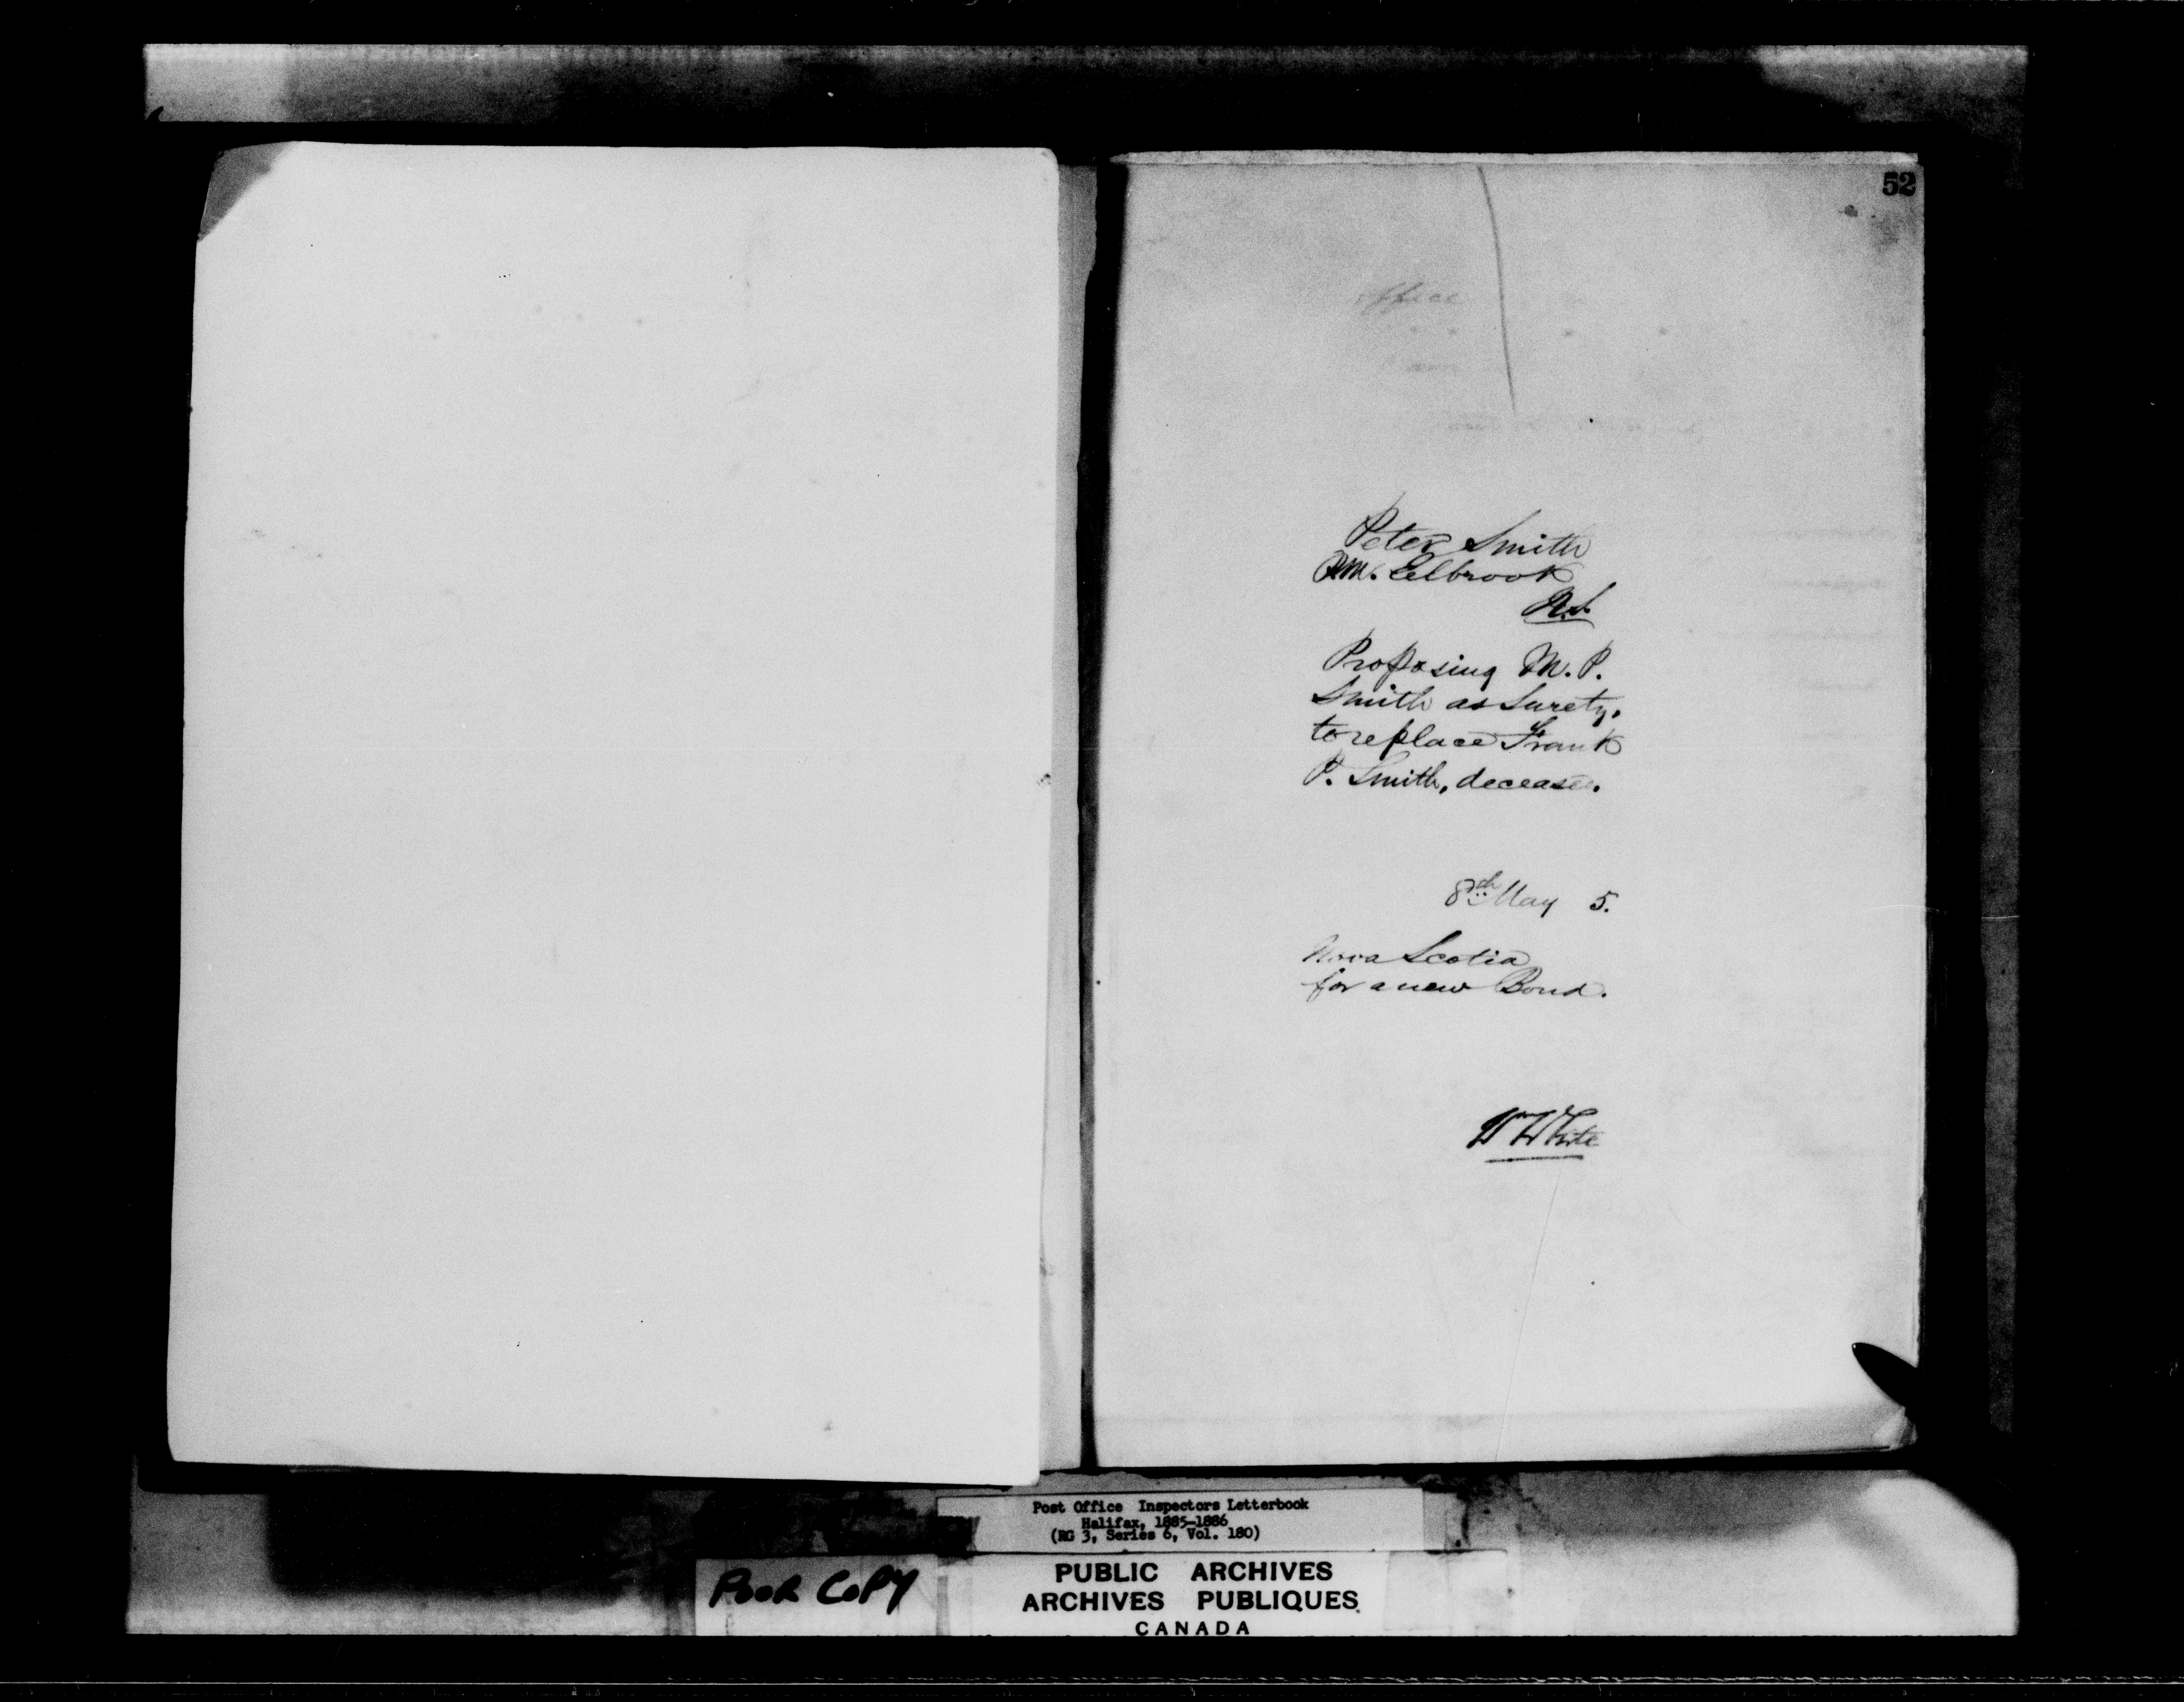 52
office
Peter Smith
P.M. Eelbrook
N.S.
Proposing M. P.
Smith as Surety,
to replace Frank
P. Smith, deceased.
8th May 5.
Nova Scotia
for a new Bond.
W White
Post Office Inspectors Letterbook
Halifax, 1885-1886
(RG 3, Series 6, Vol. 180)
POOR COPY
PUBLIC ARCHIVES
ARCHIVES PUBLIQUES
CANADA